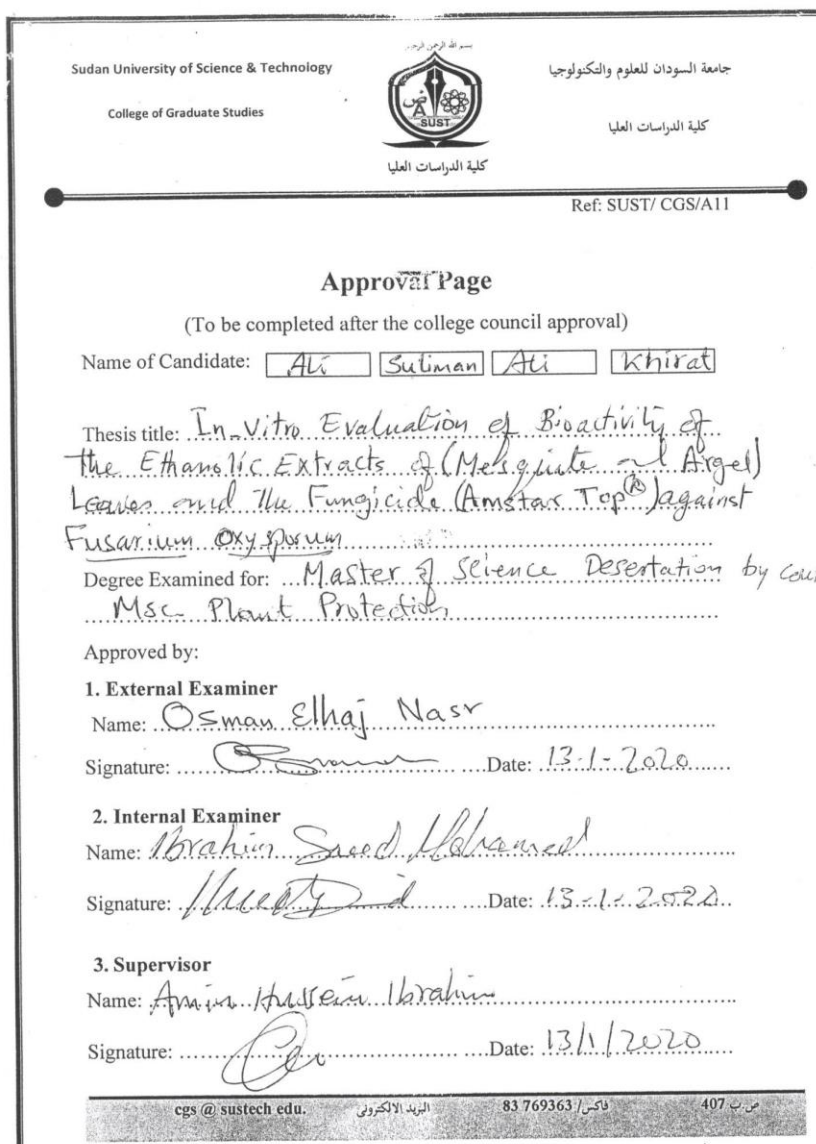 بسم الله الرحمن الرحيم
Sudan University of Science & Technology
جامعة السودان للعلوم والتكنولوجيا
College of Graduate Studies
كلية الدراسات العليا
ض
A
SUST
كلية الدراسات العليا
Ref: SUST/ CGS/A11
Approval Page
(To be completed after the college council approval)
Name of Candidate: Ali Suliman Ali Khirat
Thesis title: In-Vitro Evaluation of Bioactivity of
the Ethanolic Extracts of (Mesquite and Argel)
Leaves and The Fungicide (Amstar Top®) against
Fusarium oxysporum
Degree Examined for: Master of Science Desertation by cour
Msc Plant Protection
Approved by:
1. External Examiner
Name: Osman Elhaj Nasr
Signature: Date: 13-1-2020
2. Internal Examiner
Name: Ibrahim Saeed Mohamed
Signature: Date: 13-1-2020
3. Supervisor
Name: Amin Hussein Ibrahim
Signature: Date: 13/1/2020
cgs @ sustech edu. البريد الالكترونى فاكس/ 769363 83 ص.ب 407